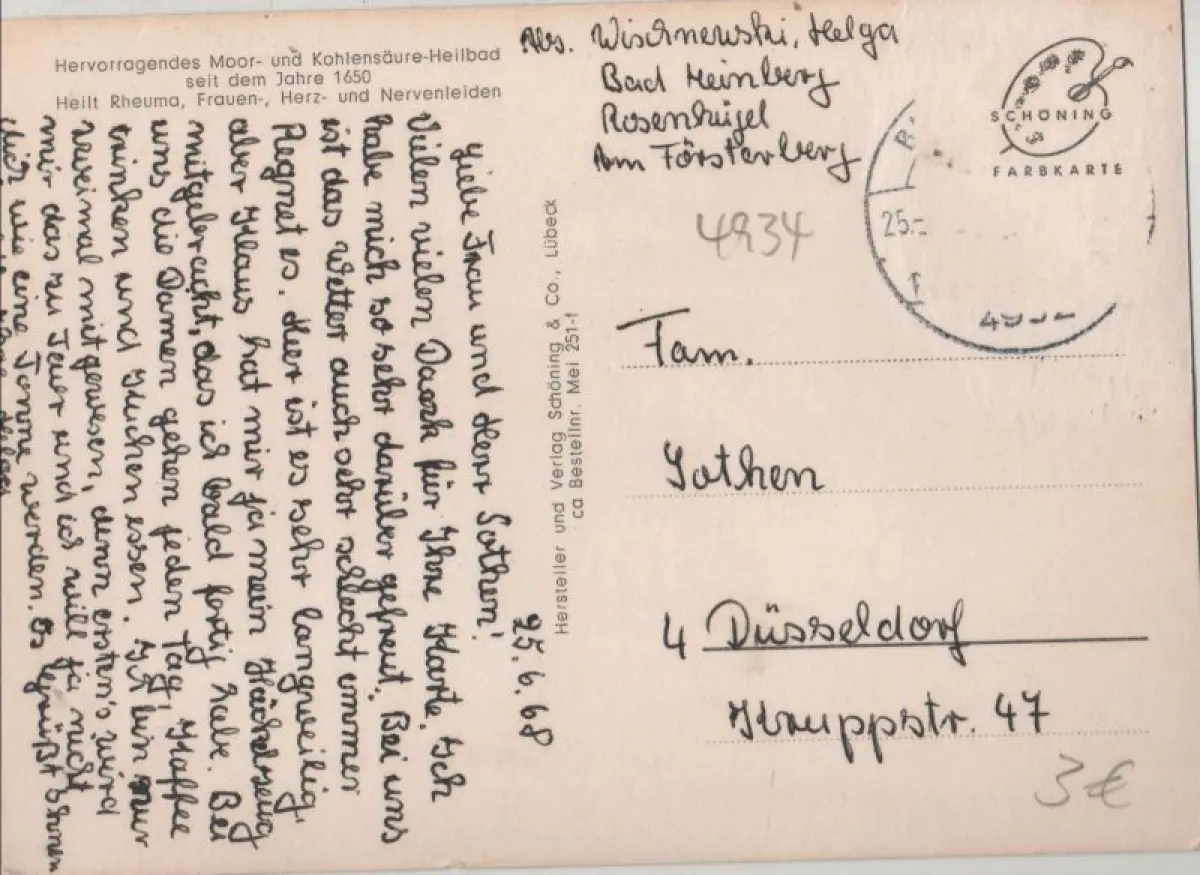 Hervorragendes Moor- und Kohlensäure-Heilbad
seit dem Jahre 1650
Heilt Rheuma, Frauen-, Herz- und Nervenleiden
25.6.68
Liebe Frau und Herr Sathen!
Vielen vielen Dank für Ihre Karte. Ich
habe mich so sehr darüber gefreut. Bei uns
ist das Wetter auch sehr schlecht immer
Regnet es. Hier ist es sehr langweilig,
aber Klaus hat mir ja mein Häckelzeug
mitgebracht, das ich bald fertig habe. Bei
uns die Damen gehen jeden Tag, Kaffee
trinken und Kuchen essen. Ich bin nur
zweimal mitgewesen, denn ersten's wird
mir das zu Teuer und ich will ja nicht
dick wie eine Tonne werden. Es grüßt Ihnen
Helga
Hersteller und Verlag Schöning & Co., Lübeck
ca Bestellnr. Mei 251-f
Abs. Wischnewski, Helga
Bad Meinberg
Rosenhügel
Am Försterberg
SCHÖNING
FARBKARTE
25.-
4934
Fam.
Sathen
4 Düsseldorf
Kruppstr. 47
3€